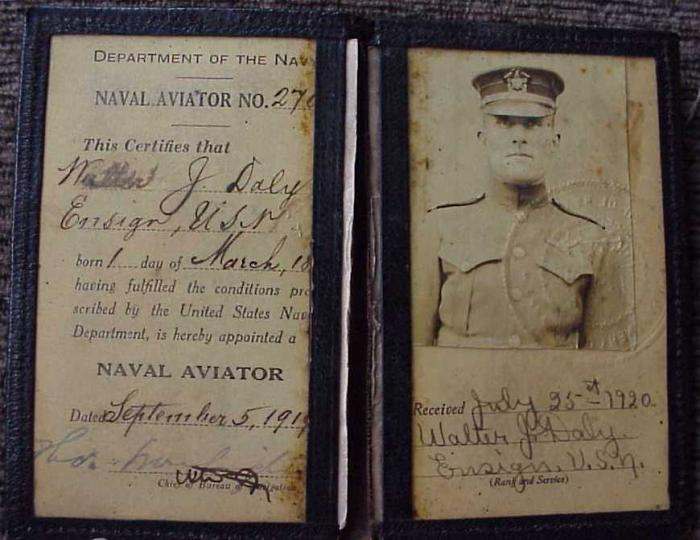 DEPARTMENT OF THE NAV
NAVAL AVIATOR NO. 276
This Certifies that
Walter J. Daly
Ensign, U.S.N.
born 1 day of March, 18
having fulfilled the conditions pre
scribed by the United States Nav
Department, is hereby appointed a
NAVAL AVIATOR
Dated September 5, 191
Chief of Bureau of Navigation
Received July 25st 1920.
Walter J. Daly.
Ensign, U.S.N.
(Rank and Service)